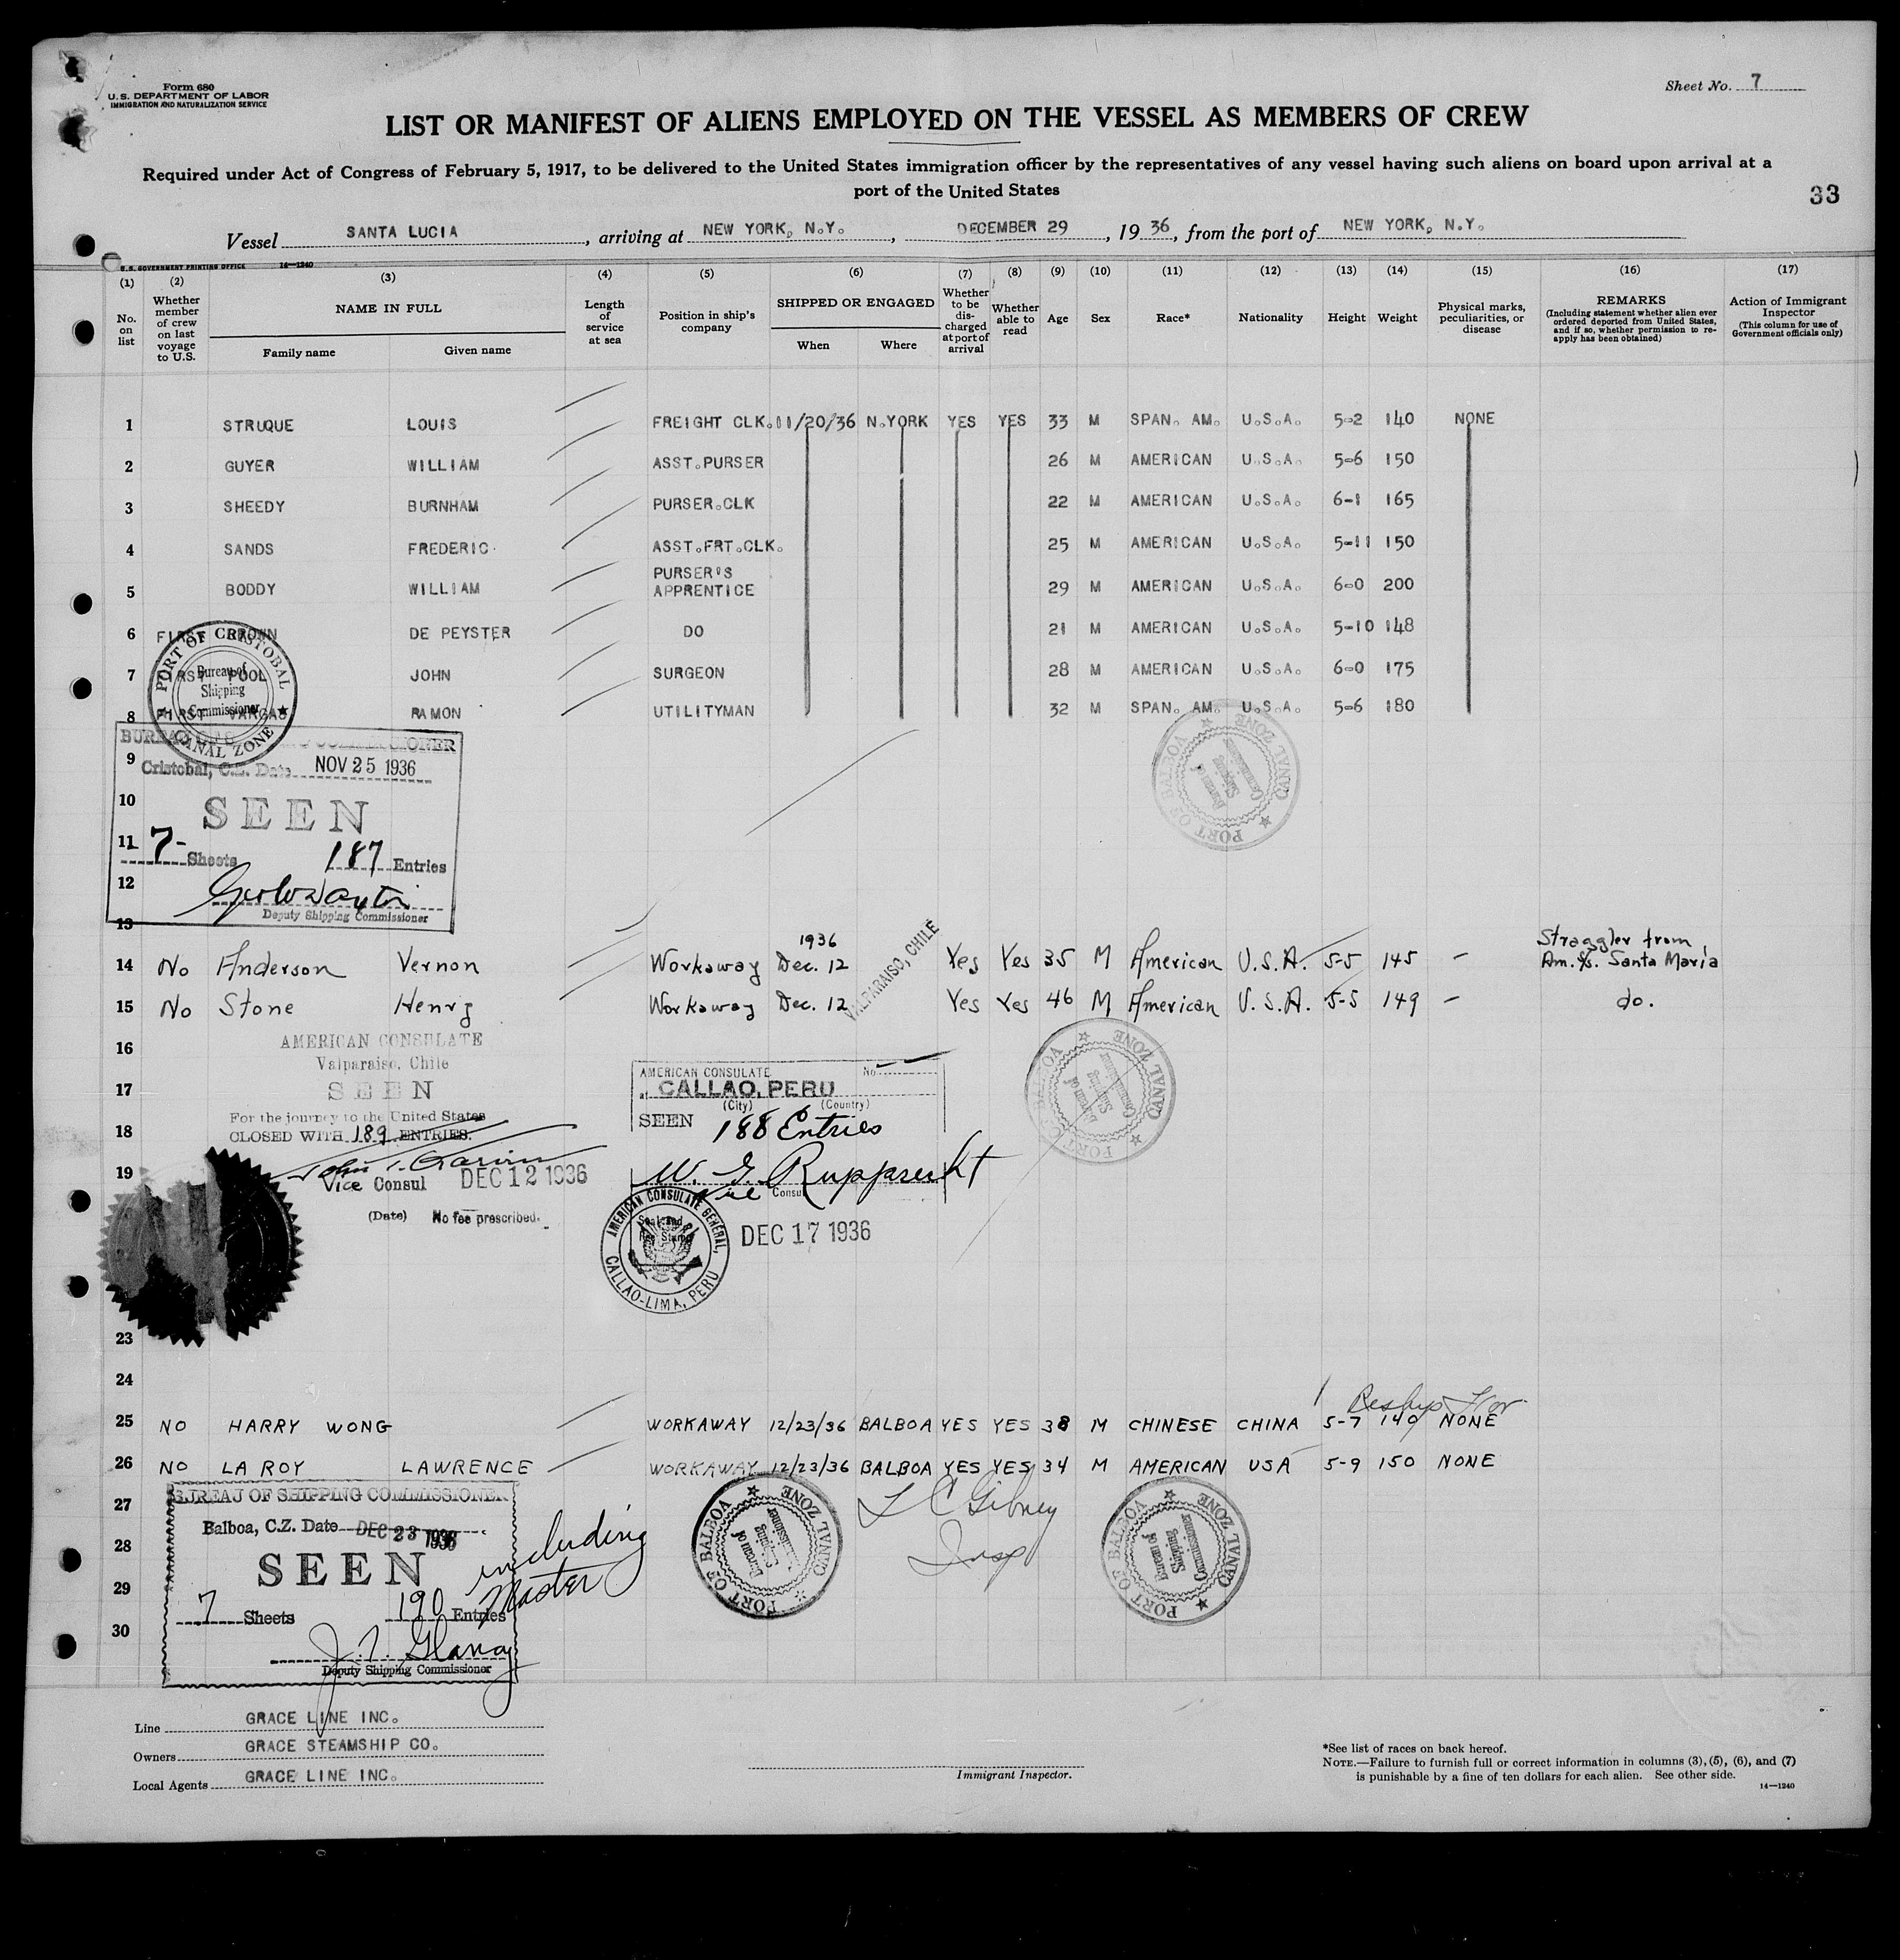 Form 680
U. S. DEPARTMENT OF LABOR
IMMIGRATION AND NATURALIZATION SERVICE
Sheet No. 7
LIST OR MANIFEST OF ALIENS EMPLOYED ON THE VESSEL AS MEMBERS OF CREW
Required under Act of Congress of February 5, 1917, to be delivered to the United States immigration officer by the representatives of any vessel having such aliens on board upon arrival at a
port of the United States
33
Vessel SANTA LUCIA, arriving at NEW YORK, N.Y., DECEMBER 29, 1936, from the port of NEW YORK, N.Y.
U.S. GOVERNMENT PRINTING OFFICE 14—1240
(1) No. on list
(2) Whether member of crew on last voyage to U.S.
(3) NAME IN FULL
Family name Given name
(4) Length of service at sea
(5) Position in ship's company
(6) SHIPPED OR ENGAGED
When Where
(7) Whether to be discharged at port of arrival
(8) Whether able to read
(9) Age
(10) Sex
(11) Race*
(12) Nationality
(13) Height
(14) Weight
(15) Physical marks, peculiarities, or disease
(16) REMARKS
(Including statement whether alien ever ordered deported from United States, and if so, whether permission to reapply has been obtained)
(17) Action of Immigrant Inspector
(This column for use of Government officials only)
1 STRUQUE LOUIS FREIGHT CLK. 11/20/36 N.YORK YES YES 33 M SPAN. AM. U.S.A. 5-2 140 NONE
2 GUYER WILLIAM ASST.PURSER 26 M AMERICAN U.S.A. 5-6 150
3 SHEEDY BURNHAM PURSER.CLK 22 M AMERICAN U.S.A. 6-1 165
4 SANDS FREDERIC. ASST.FRT.CLK. 25 M AMERICAN U.S.A. 5-11 150
5 BODDY WILLIAM PURSER'S APPRENTICE 29 M AMERICAN U.S.A. 6-0 200
6 FIRST BROWN DE PEYSTER DO 21 M AMERICAN U.S.A. 5-10 148
7 FIRST POOL JOHN SURGEON 28 M AMERICAN U.S.A. 6-0 175
8 FIRST VARGAS RAMON UTILITYMAN 32 M SPAN. AM. U.S.A. 5-6 180
PORT OF CRISTOBAL
Bureau of Shipping Commissioner
CANAL ZONE
PORT OF BALBOA
Bureau of Shipping Commissioner
CANAL ZONE
9
Cristobal, C.Z. Date NOV 25 1936
10
SEEN
11
7- Sheets 187 Entries
12
Deputy Shipping Commissioner
13
14 No Anderson Vernon Workaway 1936 Dec. 12 VALPARAISO, CHILE Yes Yes 35 M American U.S.A. 5-5 145 - Straggler from Am. s/s. Santa Maria
15 No Stone Henry Workaway Dec. 12 Yes Yes 46 M American U.S.A. 5-5 149 - do.
16
17
18
19
AMERICAN CONSULATE
Valparaiso, Chile
SEEN
For the journey to the United States
CLOSED WITH 189 ENTRIES.
Vice Consul DEC 12 1936
(Date) No fee prescribed.
AMERICAN CONSULATE No.
at CALLAO, PERU
(City) (Country)
SEEN 188 Entries
W. G. Rupprecht
Vice Consul
AMERICAN CONSULATE GENERAL, CALLAO-LIMA, PERU
DEC 17 1936
PORT OF BALBOA
Bureau of Shipping Commissioner
CANAL ZONE
23
24
25 NO HARRY WONG WORKAWAY 12/23/36 BALBOA YES YES 38 M CHINESE CHINA 5-7 140 NONE
26 NO LA ROY LAWRENCE WORKAWAY 12/23/36 BALBOA YES YES 34 M AMERICAN USA 5-9 150 NONE
27
28
29
30
BUREAU OF SHIPPING COMMISSIONER
Balboa, C.Z. Date DEC 23 1936
SEEN
7 Sheets 190 Entries
including Master
Deputy Shipping Commissioner
PORT OF BALBOA
Bureau of Shipping Commissioner
CANAL ZONE
L C Gibney
Insp
PORT OF BALBOA
Bureau of Shipping Commissioner
CANAL ZONE
Line GRACE LINE INC.
Owners GRACE STEAMSHIP CO.
Local Agents GRACE LINE INC.
Immigrant Inspector.
*See list of races on back hereof.
NOTE.—Failure to furnish full or correct information in columns (3), (5), (6), and (7)
is punishable by a fine of ten dollars for each alien. See other side.
14—1240